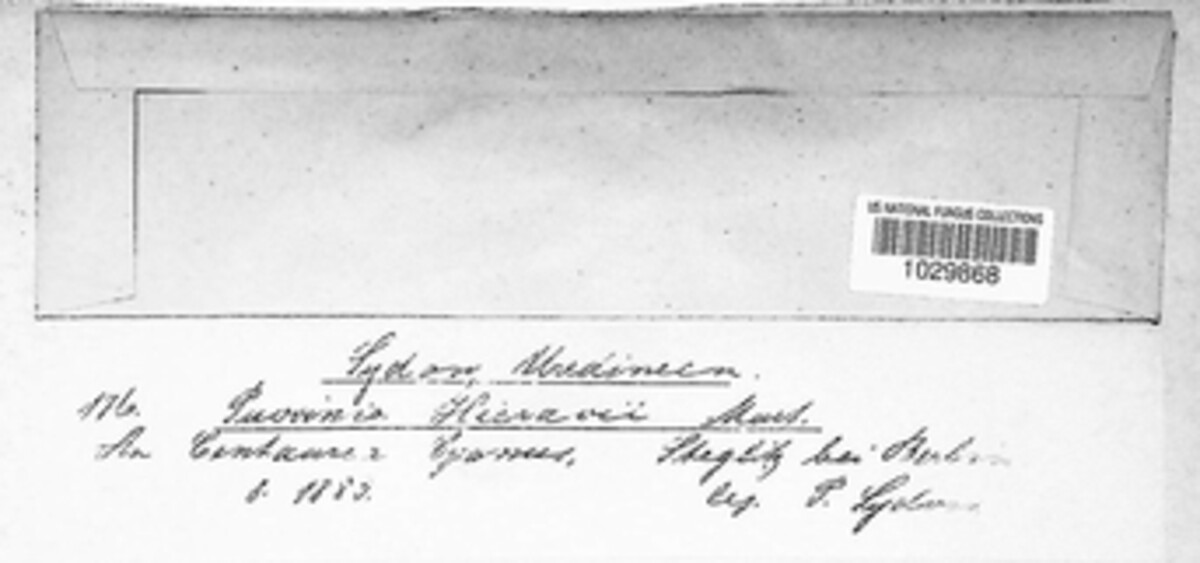 US NATIONAL FUNGUS COLLECTIONS
1029868
Sydow, Uredineen.
176. Puccinia Hieracii Mart.
An Centaurea Cyanus, Steglitz bei Berlin
1883. leg. P. Sydow